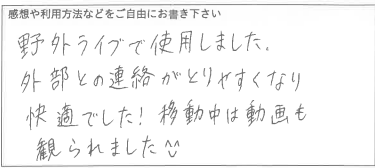 感想や利用方法などをご自由にお書き下さい
野外ライブで使用しました。
外部との連絡がとりやすくなり
快適でした！移動中は動画も
観られました